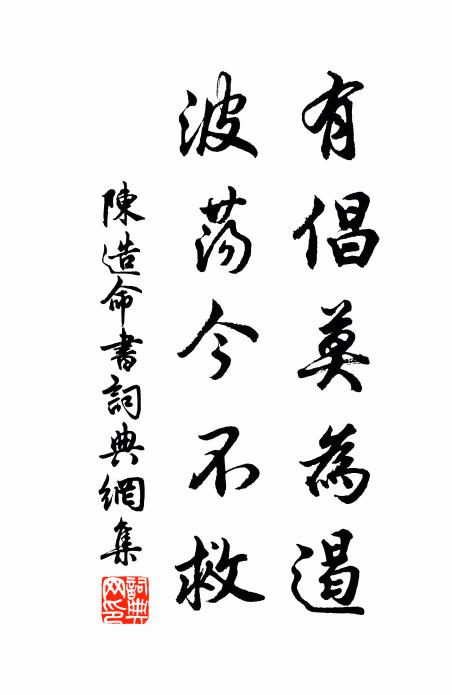 有倡莫為遏
波蕩今不救
陳造命書詞典網集
詞典網印